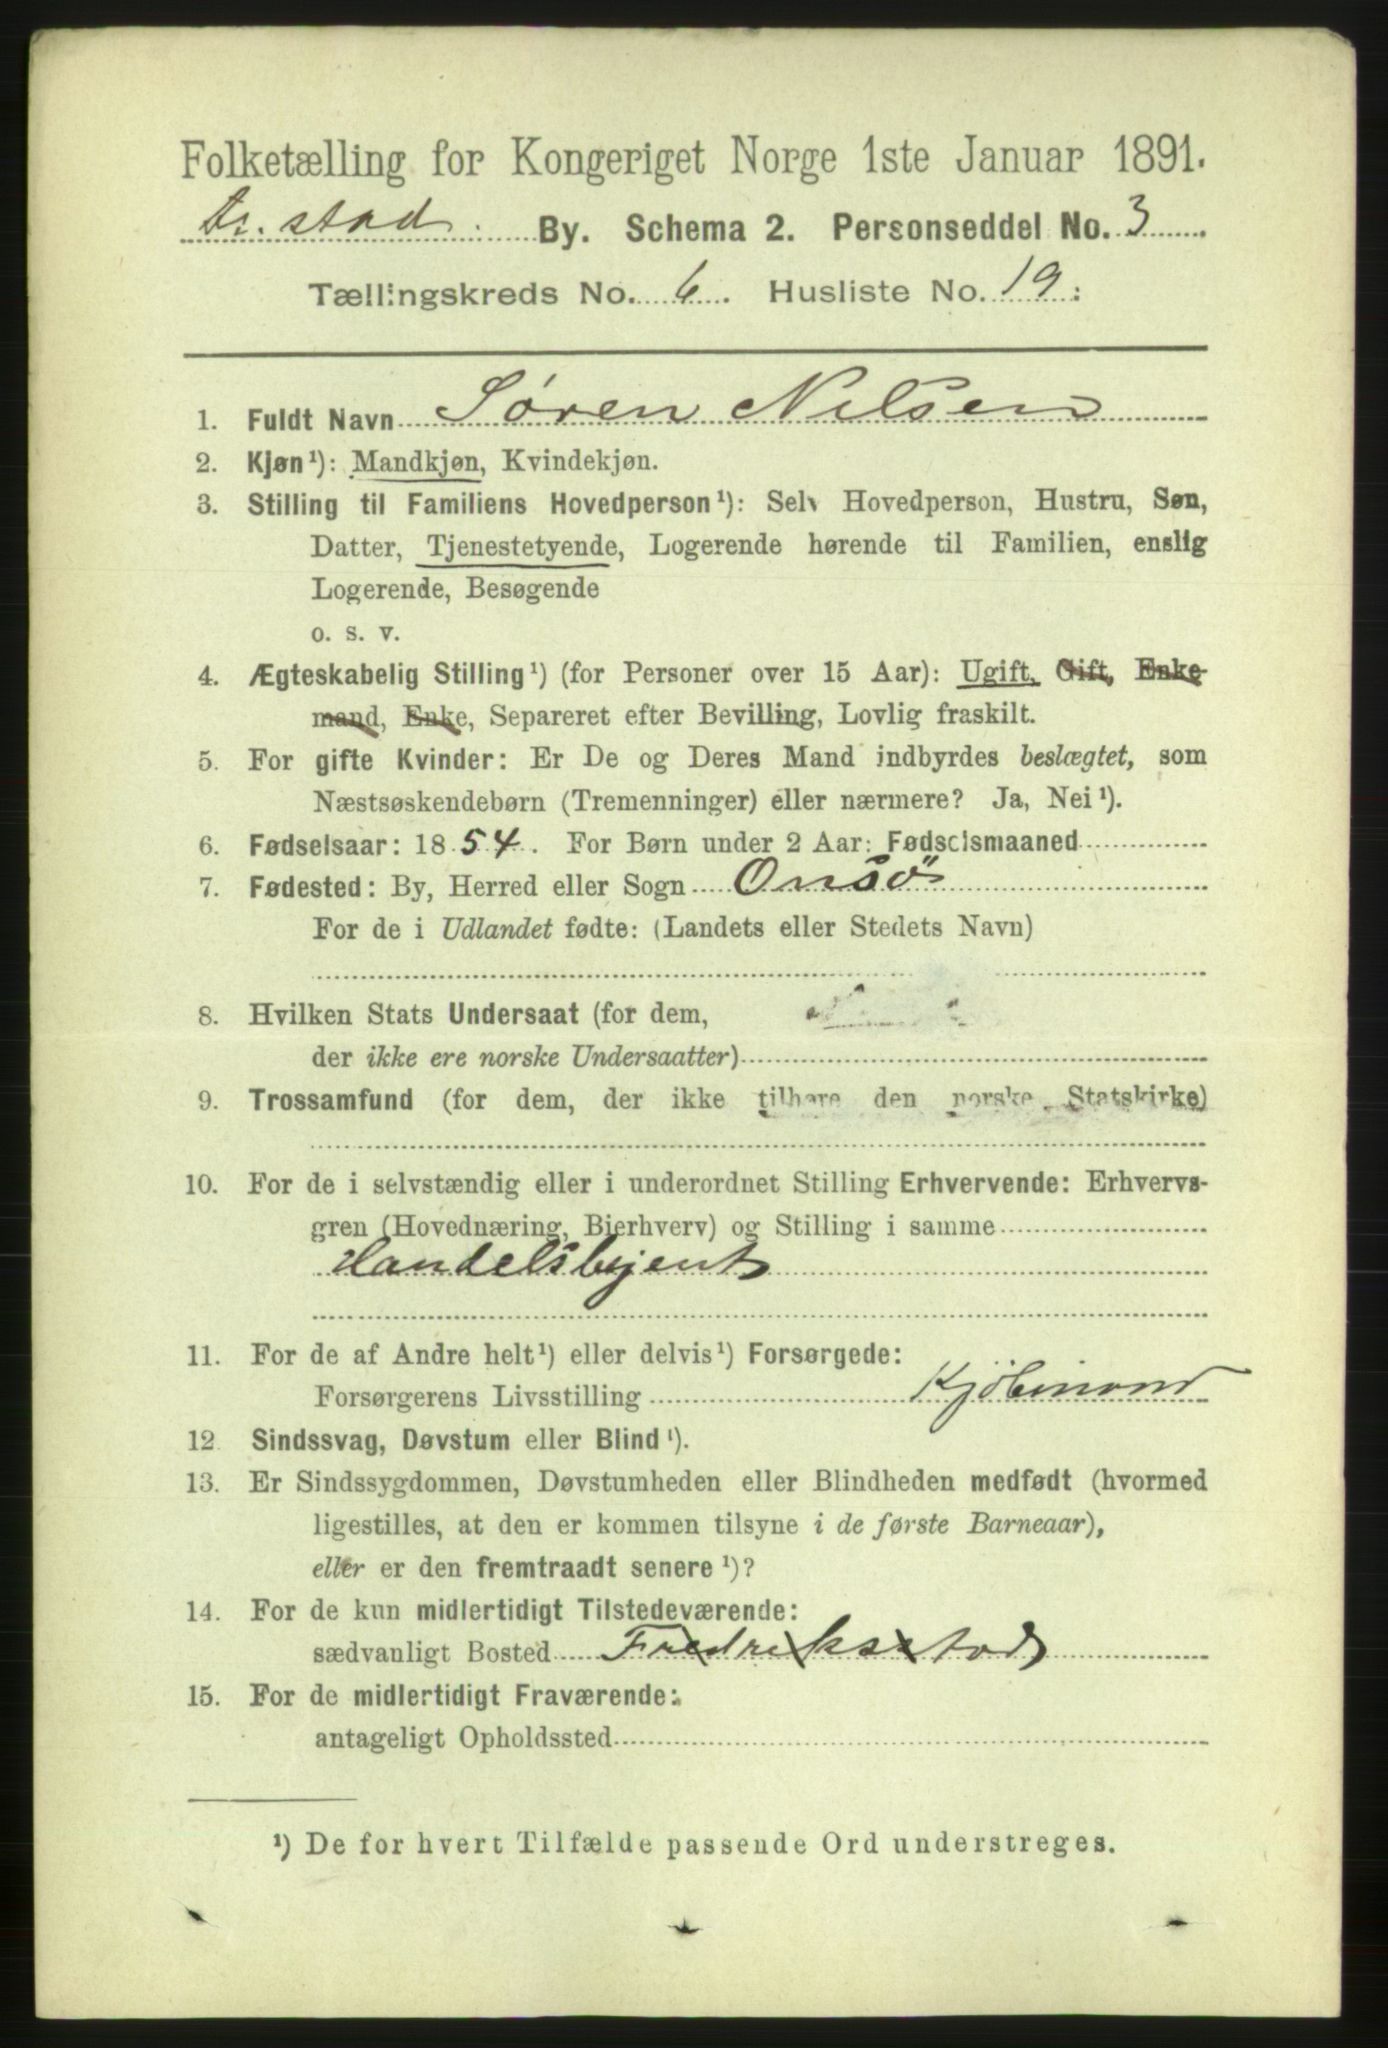 Folketælling for Kongeriget Norge 1ste Januar 1891.
Fr.stad By. Schema 2. Personseddel No. 3
Tællingskreds No. 6. Husliste No. 19
1. Fuldt Navn Søren Nilsen
2. Kjøn¹): Mandkjøn, Kvindekjøn.
3. Stilling til Familiens Hovedperson¹): Selv Hovedperson, Hustru, Søn,
Datter, Tjenestetyende, Logerende hørende til Familien, enslig
Logerende, Besøgende
o. s. v.
4. Ægteskabelig Stilling¹) (for Personer over 15 Aar): Ugift, Gift, Enke-
mand, Enke, Separeret efter Bevilling, Lovlig fraskilt.
5. For gifte Kvinder: Er De og Deres Mand indbyrdes beslægtet, som
Næstsøskendebørn (Tremenninger) eller nærmere? Ja, Nei¹).
6. Fødselsaar: 1854. For Børn under 2 Aar: Fødselsmaaned
7. Fødested: By, Herred eller Sogn Onsö
For de i Udlandet fødte: (Landets eller Stedets Navn)
8. Hvilken Stats Undersaat (for dem,
der ikke ere norske Undersaatter)
9. Trossamfund (for dem, der ikke tilhøre den norske Statskirke)
10. For de i selvstændig eller i underordnet Stilling Erhvervende: Erhvervs-
gren (Hovednæring, Bierhverv) og Stilling i samme
Handelsbejent
11. For de af Andre helt¹) eller delvis¹) Forsørgede:
Forsørgerens Livsstilling Kjöbmand
12 Sindssvag, Døvstum eller Blind¹).
13. Er Sindssygdommen, Døvstumheden eller Blindheden medfødt (hvormed
ligestilles, at den er kommen tilsyne i de første Barneaar),
eller er den fremtraadt senere¹)?
14. For de kun midlertidigt Tilstedeværende:
sædvanligt Bosted Fredriksstad
15. For de midlertidigt Fraværende:
antageligt Opholdssted
¹) De for hvert Tilfælde passende Ord understreges.